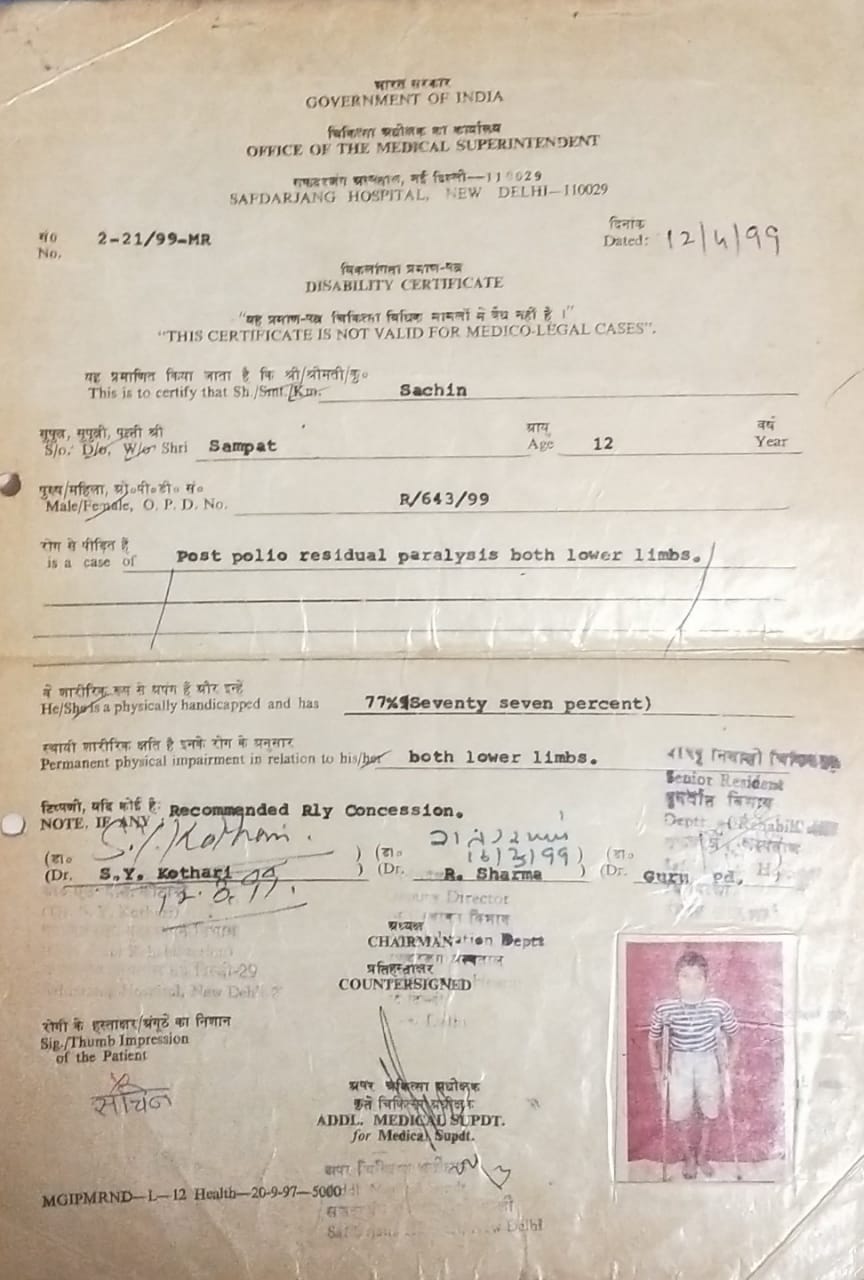 भारत सरकार
GOVERNMENT OF INDIA
चिकित्सा अधीक्षक का कार्यालय
OFFICE OF THE MEDICAL SUPERINTENDENT
सफदरजंग अस्पताल, नई दिल्ली—110029
SAFDARJANG HOSPITAL, NEW DELHI—110029
सं० दिनांक
No. 2-21/99-MR Dated: 12/4/99
विकलांगता प्रमाण-पत्र
DISABILITY CERTIFICATE
"यह प्रमाण-पत्र चिकित्सा विधिक मामलों में वैध नहीं है ।"
"THIS CERTIFICATE IS NOT VALID FOR MEDICO-LEGAL CASES".
यह प्रमाणित किया जाता है कि श्री/श्रीमती/कु०
This is to certify that Sh./Smt./Km. Sachin
सुपुत्र, सुपुत्री, पत्नी श्री आयु वर्ष
S/o. D/o, W/o Shri Sampat Age 12 Year
पुरुष/महिला, ओ०पी०डी० सं०
Male/Female, O. P. D. No. R/643/99
रोग से पीड़ित हैं
is a case of Post polio residual paralysis both lower limbs.
वे शारीरिक रूप से अपंग हैं और इन्हें
He/She is a physically handicapped and has 77% (Seventy seven percent)
स्थायी शारीरिक क्षति है इनके रोग के अनुसार
Permanent physical impairment in relation to his/her both lower limbs.
Senior Resident
टिप्पणी, यदि कोई है:
NOTE, IF ANY : Recommended Rly Concession.
S.Y. Kothari
16/3/99
(डा० ) (डा० ) (डा०
(Dr. S.Y. Kothari ) (Dr. R. Sharma ) (Dr. Guru Pd,
Director
अध्यक्ष
CHAIRMAN
प्रतिहस्ताक्षर
COUNTERSIGNED
रोगी के हस्ताक्षर/अंगूठे का निशान
Sig./Thumb Impression
of the Patient
सचिन
अपर चिकित्सा अधीक्षक
कृते चिकित्सा अधीक्षक
ADDL. MEDICAL SUPDT.
for Medical Supdt.
MGIPMRND—L—12 Health—20-9-97—5000